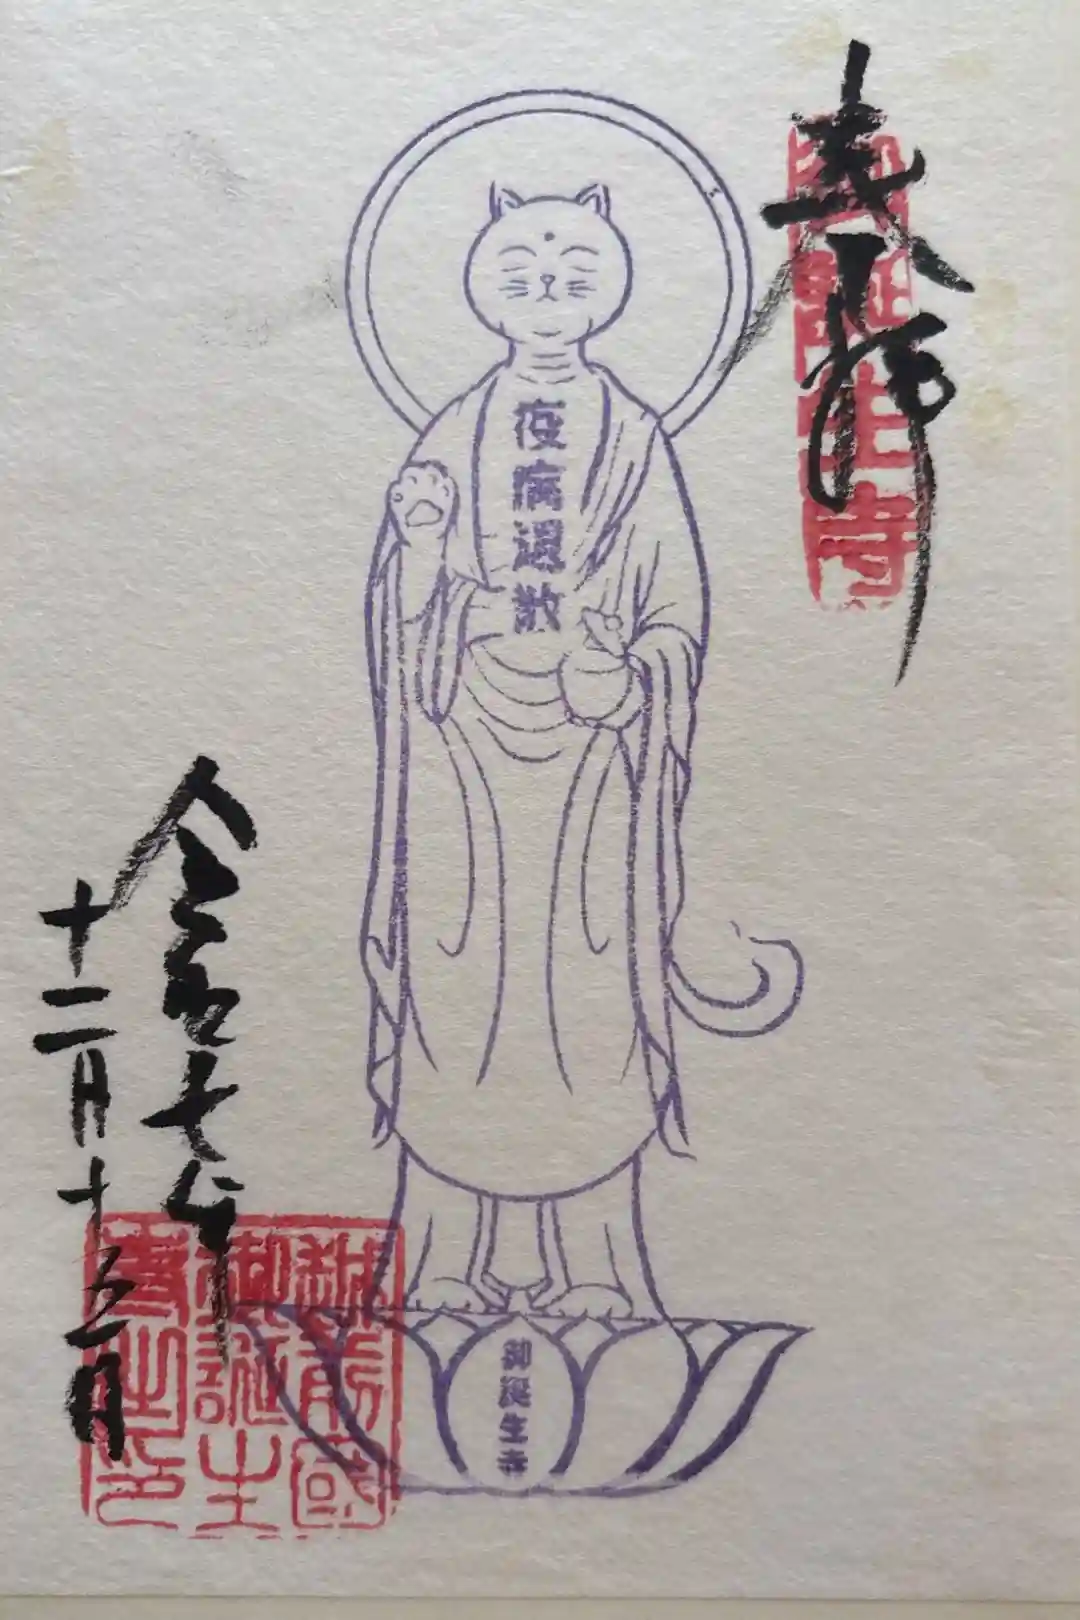 奉拝
御誕生寺
疫病退散
御誕生寺
令和七年
十二月十五日
越前國
御誕生
寺之印